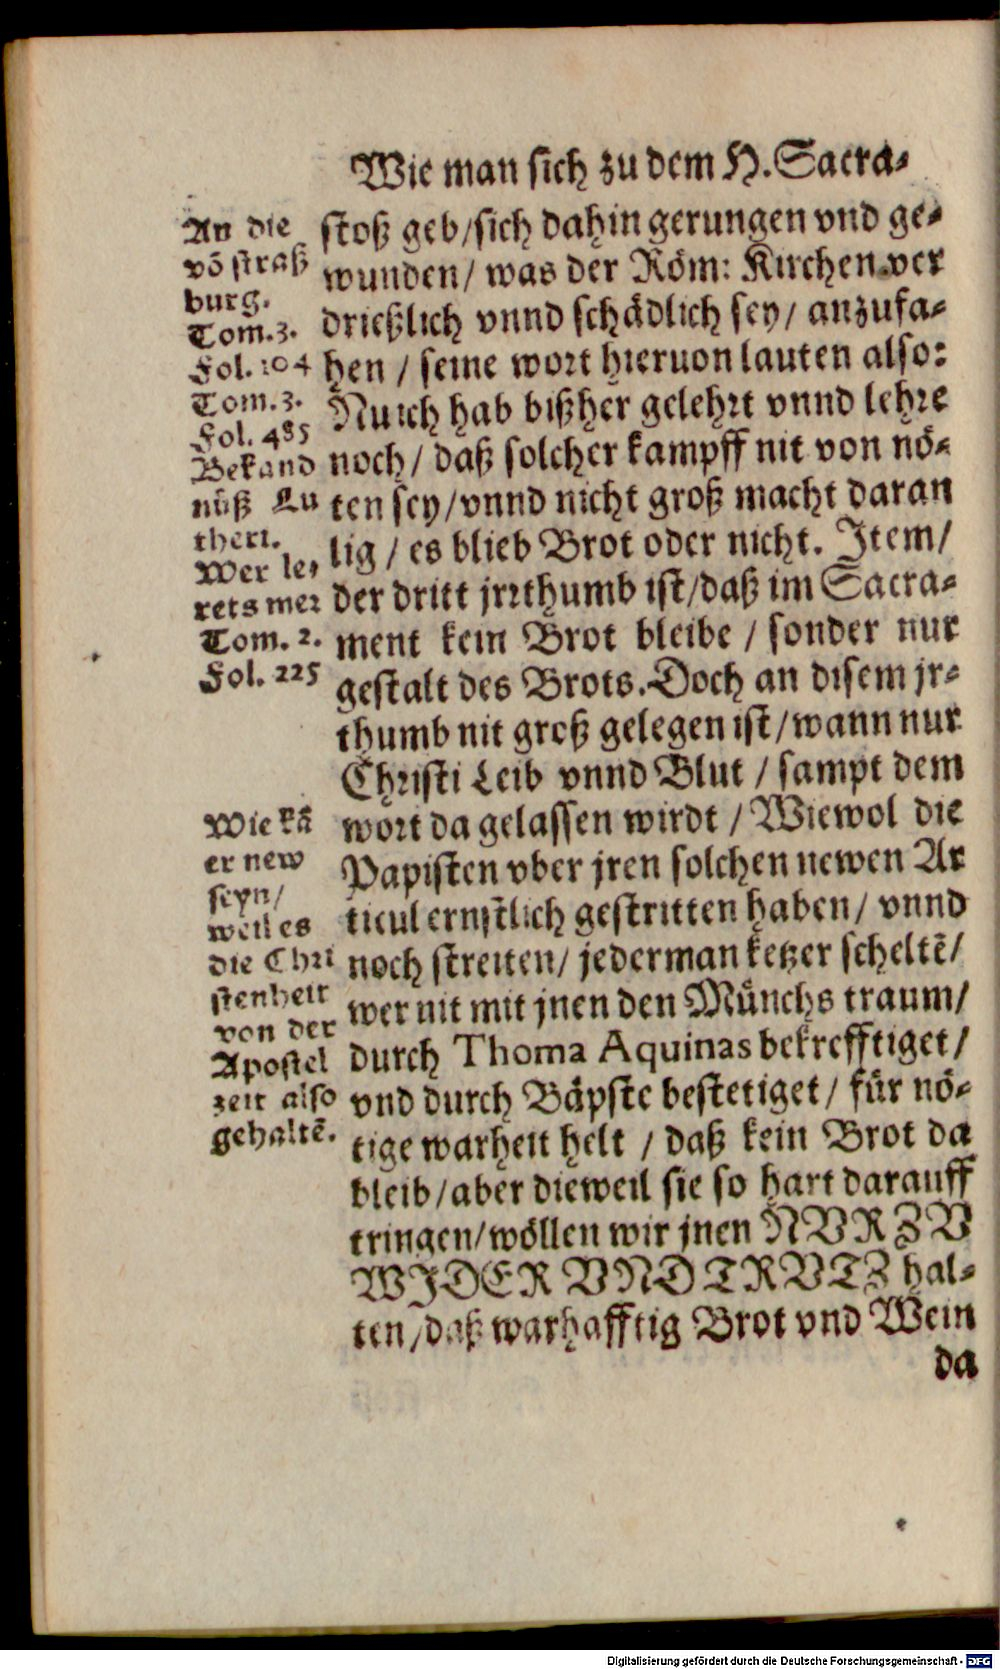 Wie man sich zu dem H. Sacra-
An die
võ straß
burg.
Tom. 3.
Fol. 104
Tom. 3.
Fol. 485
Bekand
nüß Lu
theri.
Wer le-
rets mer
Tom. 2.
Fol. 225
Wie kã
er new
seyn/
weil es
die Chri
stenheit
von der
Apostel
zeit also
gehaltẽ.
stoß geb/sich dahin gerungen vnd ge-
wunden/ was der Röm: Kirchen ver
drießlich vnnd schädlich sey/ anzufa-
hen / seine wort hieruon lauten also:
Nu ich hab bißher gelehrt vnnd lehre
noch/ daß solcher kampff nit von nö-
ten sey/vnnd nicht groß macht daran
lig / es blieb Brot oder nicht. Item/
der dritt jrrthumb ist/daß im Sacra-
ment kein Brot bleibe / sonder nur
gestalt des Brots. Doch an disem jr-
thumb nit groß gelegen ist/wann nur
Christi Leib vnnd Blut / sampt dem
wort da gelassen wirdt / Wiewol die
Papisten vber jren solchen newen Ar
ticul ernstlich gestritten haben/ vnnd
noch streiten/ jederman ketzer scheltẽ/
wer nit mit jnen den Münchs traum/
durch Thoma Aquinas bekrefftiget/
vnd durch Bäpste bestetiget/ für nö-
tige warheit helt / daß kein Brot da
bleib/aber dieweil sie so hart darauff
tringen/wöllen wir jnen NVR ZV
WIDER VND TRVTZ hal-
ten/daß warhafftig Brot vnd Wein
da
Digitalisierung gefördert durch die Deutsche Forschungsgemeinschaft - DFG